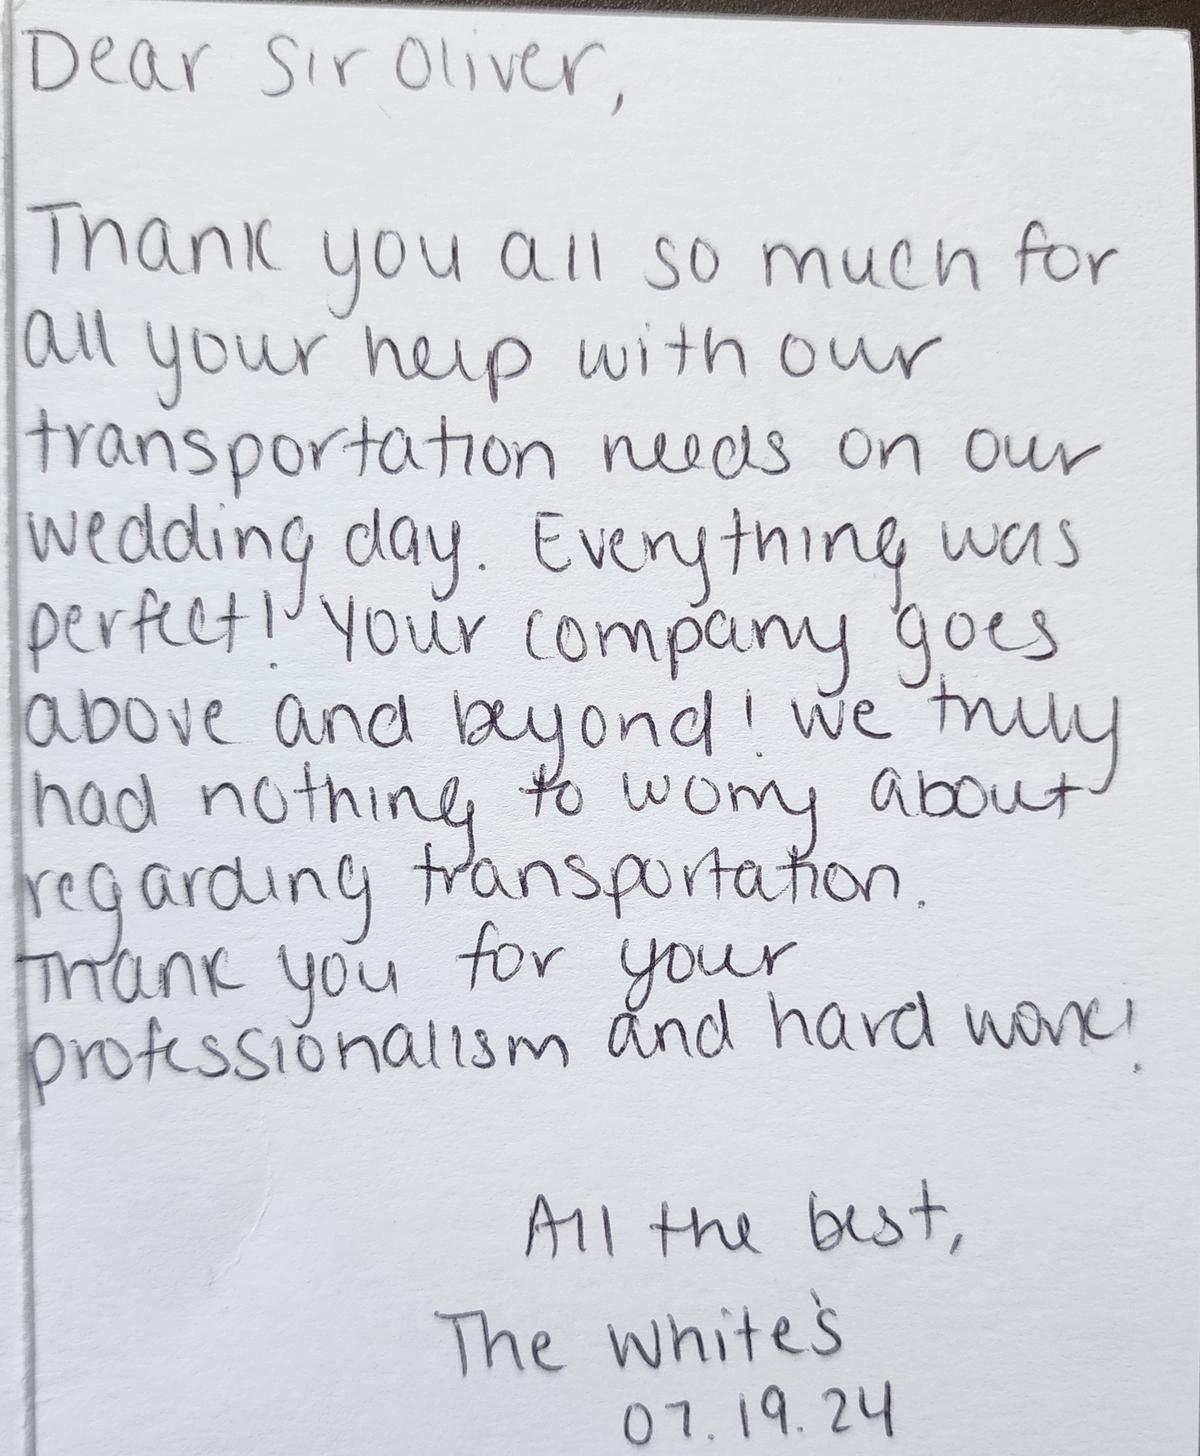 Dear Sir Oliver,
Thank you all so much for
all your help with our
transportation needs on our
wedding day. Everything was
perfect! Your company goes
above and beyond! We truly
had nothing to worry about
regarding transportation.
Thank you for your
professionalism and hard work!
All the best,
The White's
07.19.24